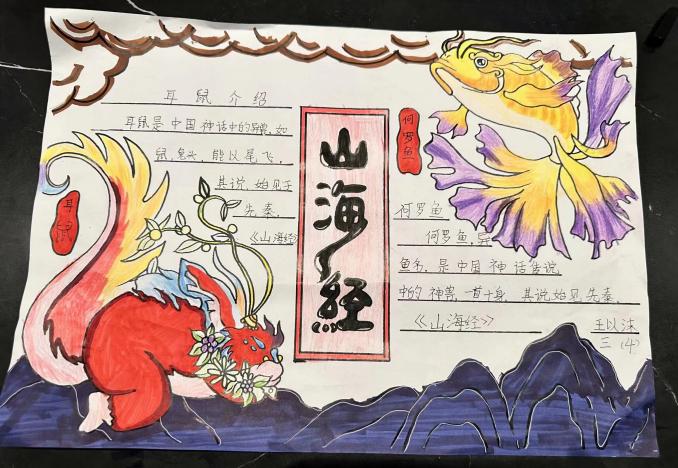 耳鼠介绍
耳鼠是中国神话中的异兽,如
鼠,兔头,能以尾飞,
其说,始见于
先秦,
《山海经》
耳鼠
山海经
何罗鱼
何罗鱼
何罗鱼,异
鱼名,是中国神话传说,
中的神兽,一首十身,其说始见先秦,
《山海经》
王以沫
三(4)